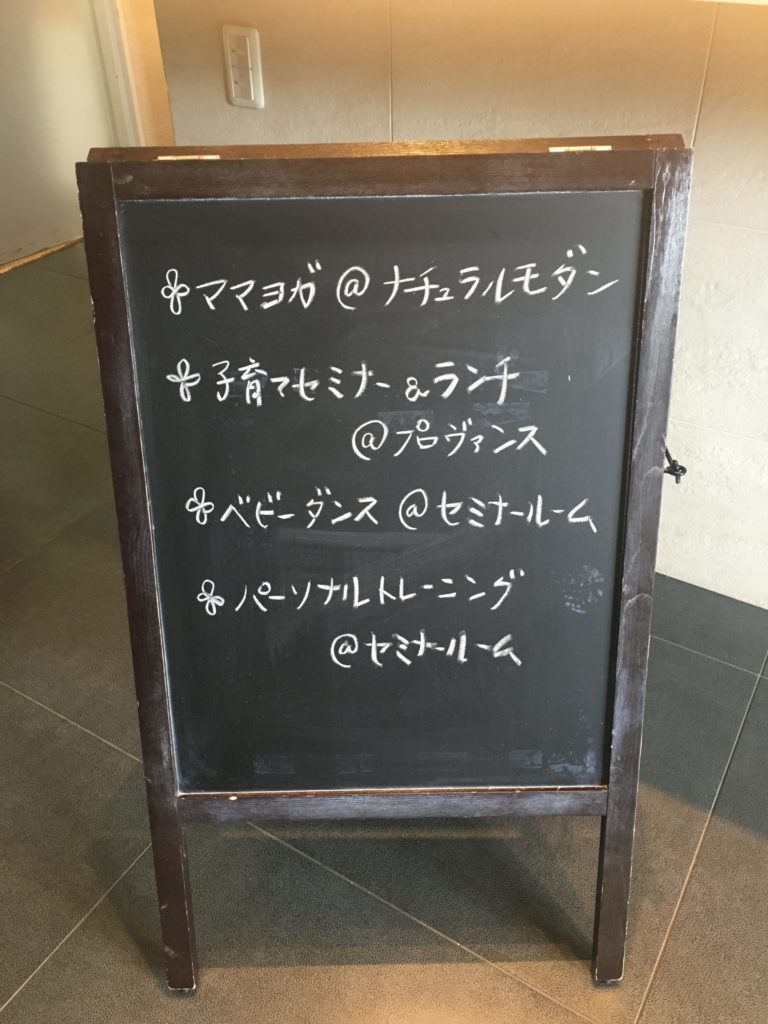 ママヨガ @ ナチュラルモダン
子育てセミナー&ランチ
@プロヴァンス
ベビーダンス @セミナールーム
パーソナルトレーニング
@セミナールーム